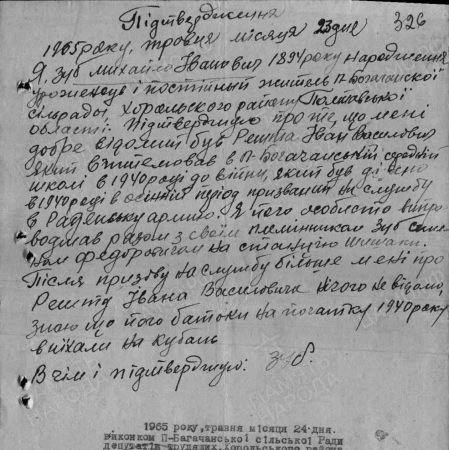 Підтвердження 326
1965 року, травня місяця 23 дня
Я, Зуб Михайло Іванович 1894 року народження
уроженець і постійний житель П-Богачанської
сільради, Хорольского району Полтавської
області. Підтверджую про те, що мені
добре відомий був Решта Іван Василович
який вчителював в П-Богачанській середній
школі в 1940 році до війни, який був дійсно
в 1940 році в осінній період призваний на службу
в Радянську армію. Я його особисто випро
воджав разом з своїм племінником Зуб
Федоровичом на станцію
Після призову на службу більше мені про
Решту Івана Василовича нічого не відомо,
знаю що його батьки на початку 1940 року
виїхали на Кубань
В чім і підтверджую: Зуб.
1965 року, травня місяця 24-дня.
Виконком П-Багачанської сільської Ради
депутатів трудящих, Хорольського района